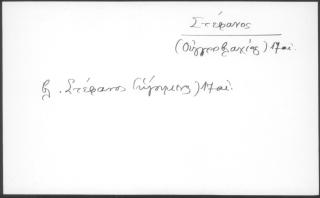 Στέφανος
(Οὑγγροβλαχίας) 17 αἰ.
βλ. Στέφανος (ἡγούμενος) 17 αἰ.